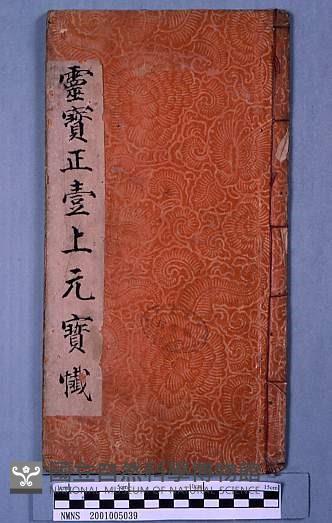 靈寶正壹上元寶懺
NATIONAL MUSEUM OF NATURAL SCIENCE
NMNS 2001005039